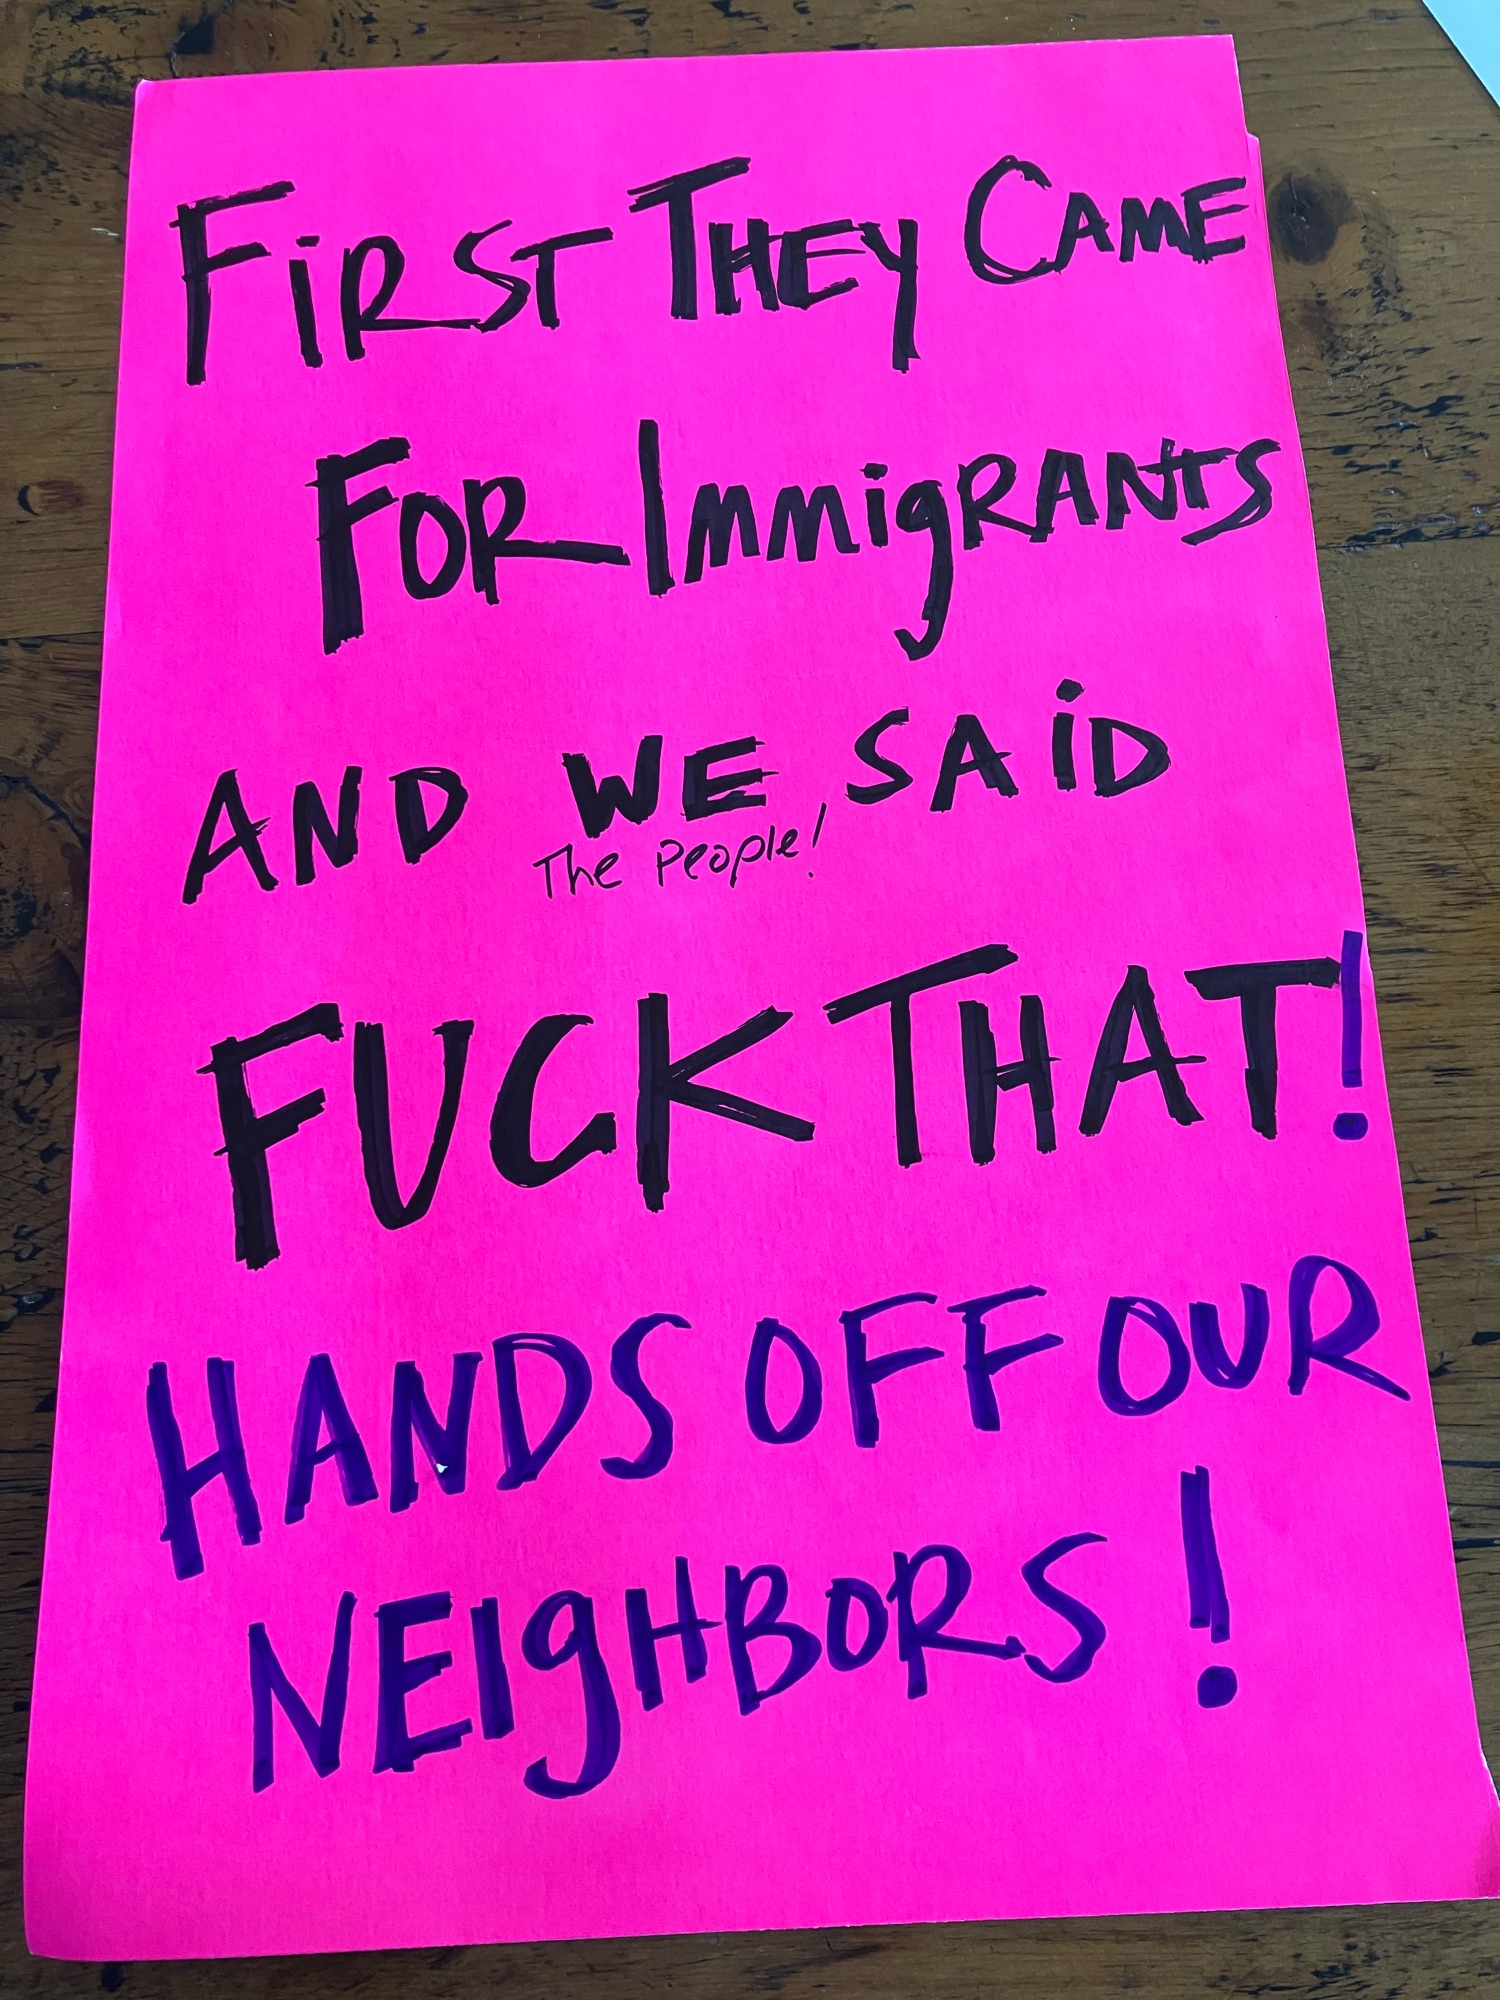 FiRST THEY CAME
FOR ImmigRANTS
AND WE SAiD
The People!
FUCK THAT!
HANDS OFF OUR
NEIgHBORS!